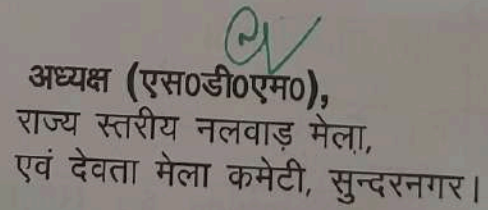 अध्यक्ष (एस०डी०एम०),
राज्य स्तरीय नलवाड़ मेला,
एवं देवता मेला कमेटी, सुन्दरनगर।